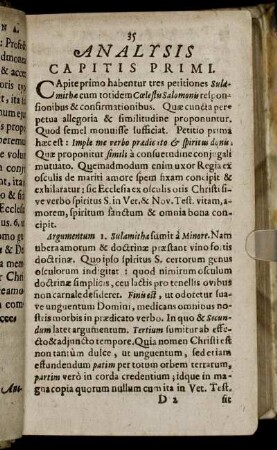 35
ANALYSIS
CAPITIS PRIMI.
CApite primo habentur tres petitiones Sula-
mithæ cum totidem Cœlestis Salomonis respon-
sionibus & confirmationibus. Quæ cuncta per-
petua allegoria & similitudine proponuntur.
Quod semel monuisse sufficiat. Petitio prima
hæc est: Imple me verbo prædicato & spiritus donis.
Quæ proponitur simili à consuetudine conjugali
mutuato. Quemadmodum enim uxor Regia ex
osculis de mariti amore spem fixam concipit &
exhilaratur; sic Ecclesia ex osculis oris Christi si-
ve verbo spiritus S. in Vet, & Nov. Test. vitam, a-
morem, spiritum sanctum & omnia bona con-
cipit.
Argumentum 1. Sulamitha sumit à Minore. Nam
ubera amorum & doctrinæ præstant vino fortis
doctrinæ. Quo ipso spiritus S. certorum genus
osculorum indigitat: quod nimirum osculum
doctrinæ simplicis, ceu lactis pro tenellis ovibus
non carnale desideret. Finis est, ut odoretur sua-
ve unguentum Domini, medicans omnibus no-
stris morbis in prædicato verbo. In quo & Secun-
dum latet argumentum. Tertium sumitur ab effe-
cto & adjuncto tempore. Quia nomen Christi est
non tantùm dulce, ut unguentum, sed etiam
effundendum patim per totum orbem terrarum,
partim verò in corda credentium, idque in ma-
gna copia quotum nullum cum ita in Vet. Test.
D 2 fit